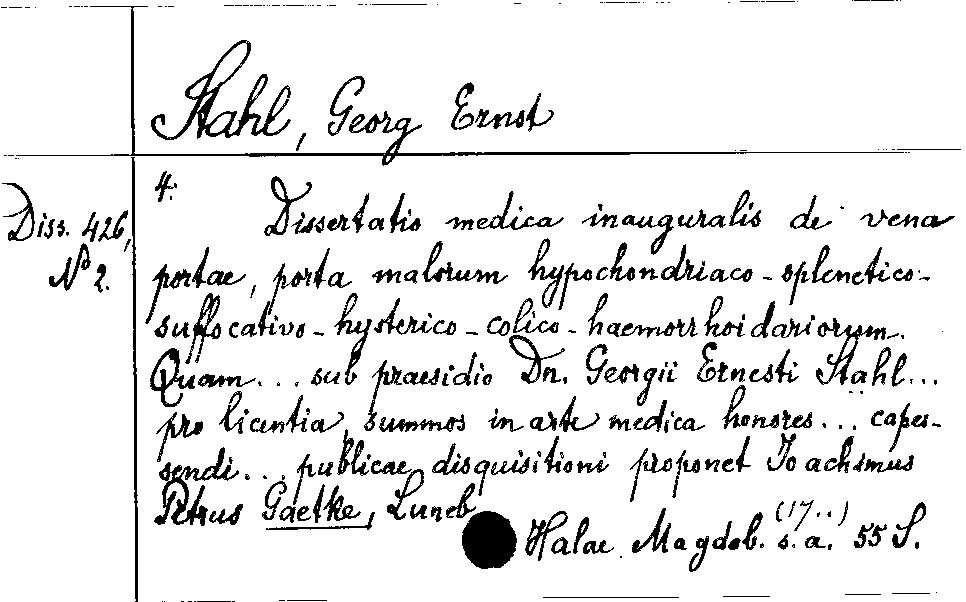 Stahl, Georg Ernst
Diss. 426,
No 2.
4:
Dissertatio medica inauguralis de vena
portae, porta malorum hypochondriaco-splenetico-
suffocativo-hysterico-colico-haemorrhoidariorum.
Quam... sub praesidio Dn. Georgii Ernesti Stahl...
pro licentia, summos in arte medica honores... capes-
sendi... publicae disquisitioni proponet Joachimus
Petrus Gaetke, Luneb
(17..)
Halae Magdeb. s.a. 55 S.